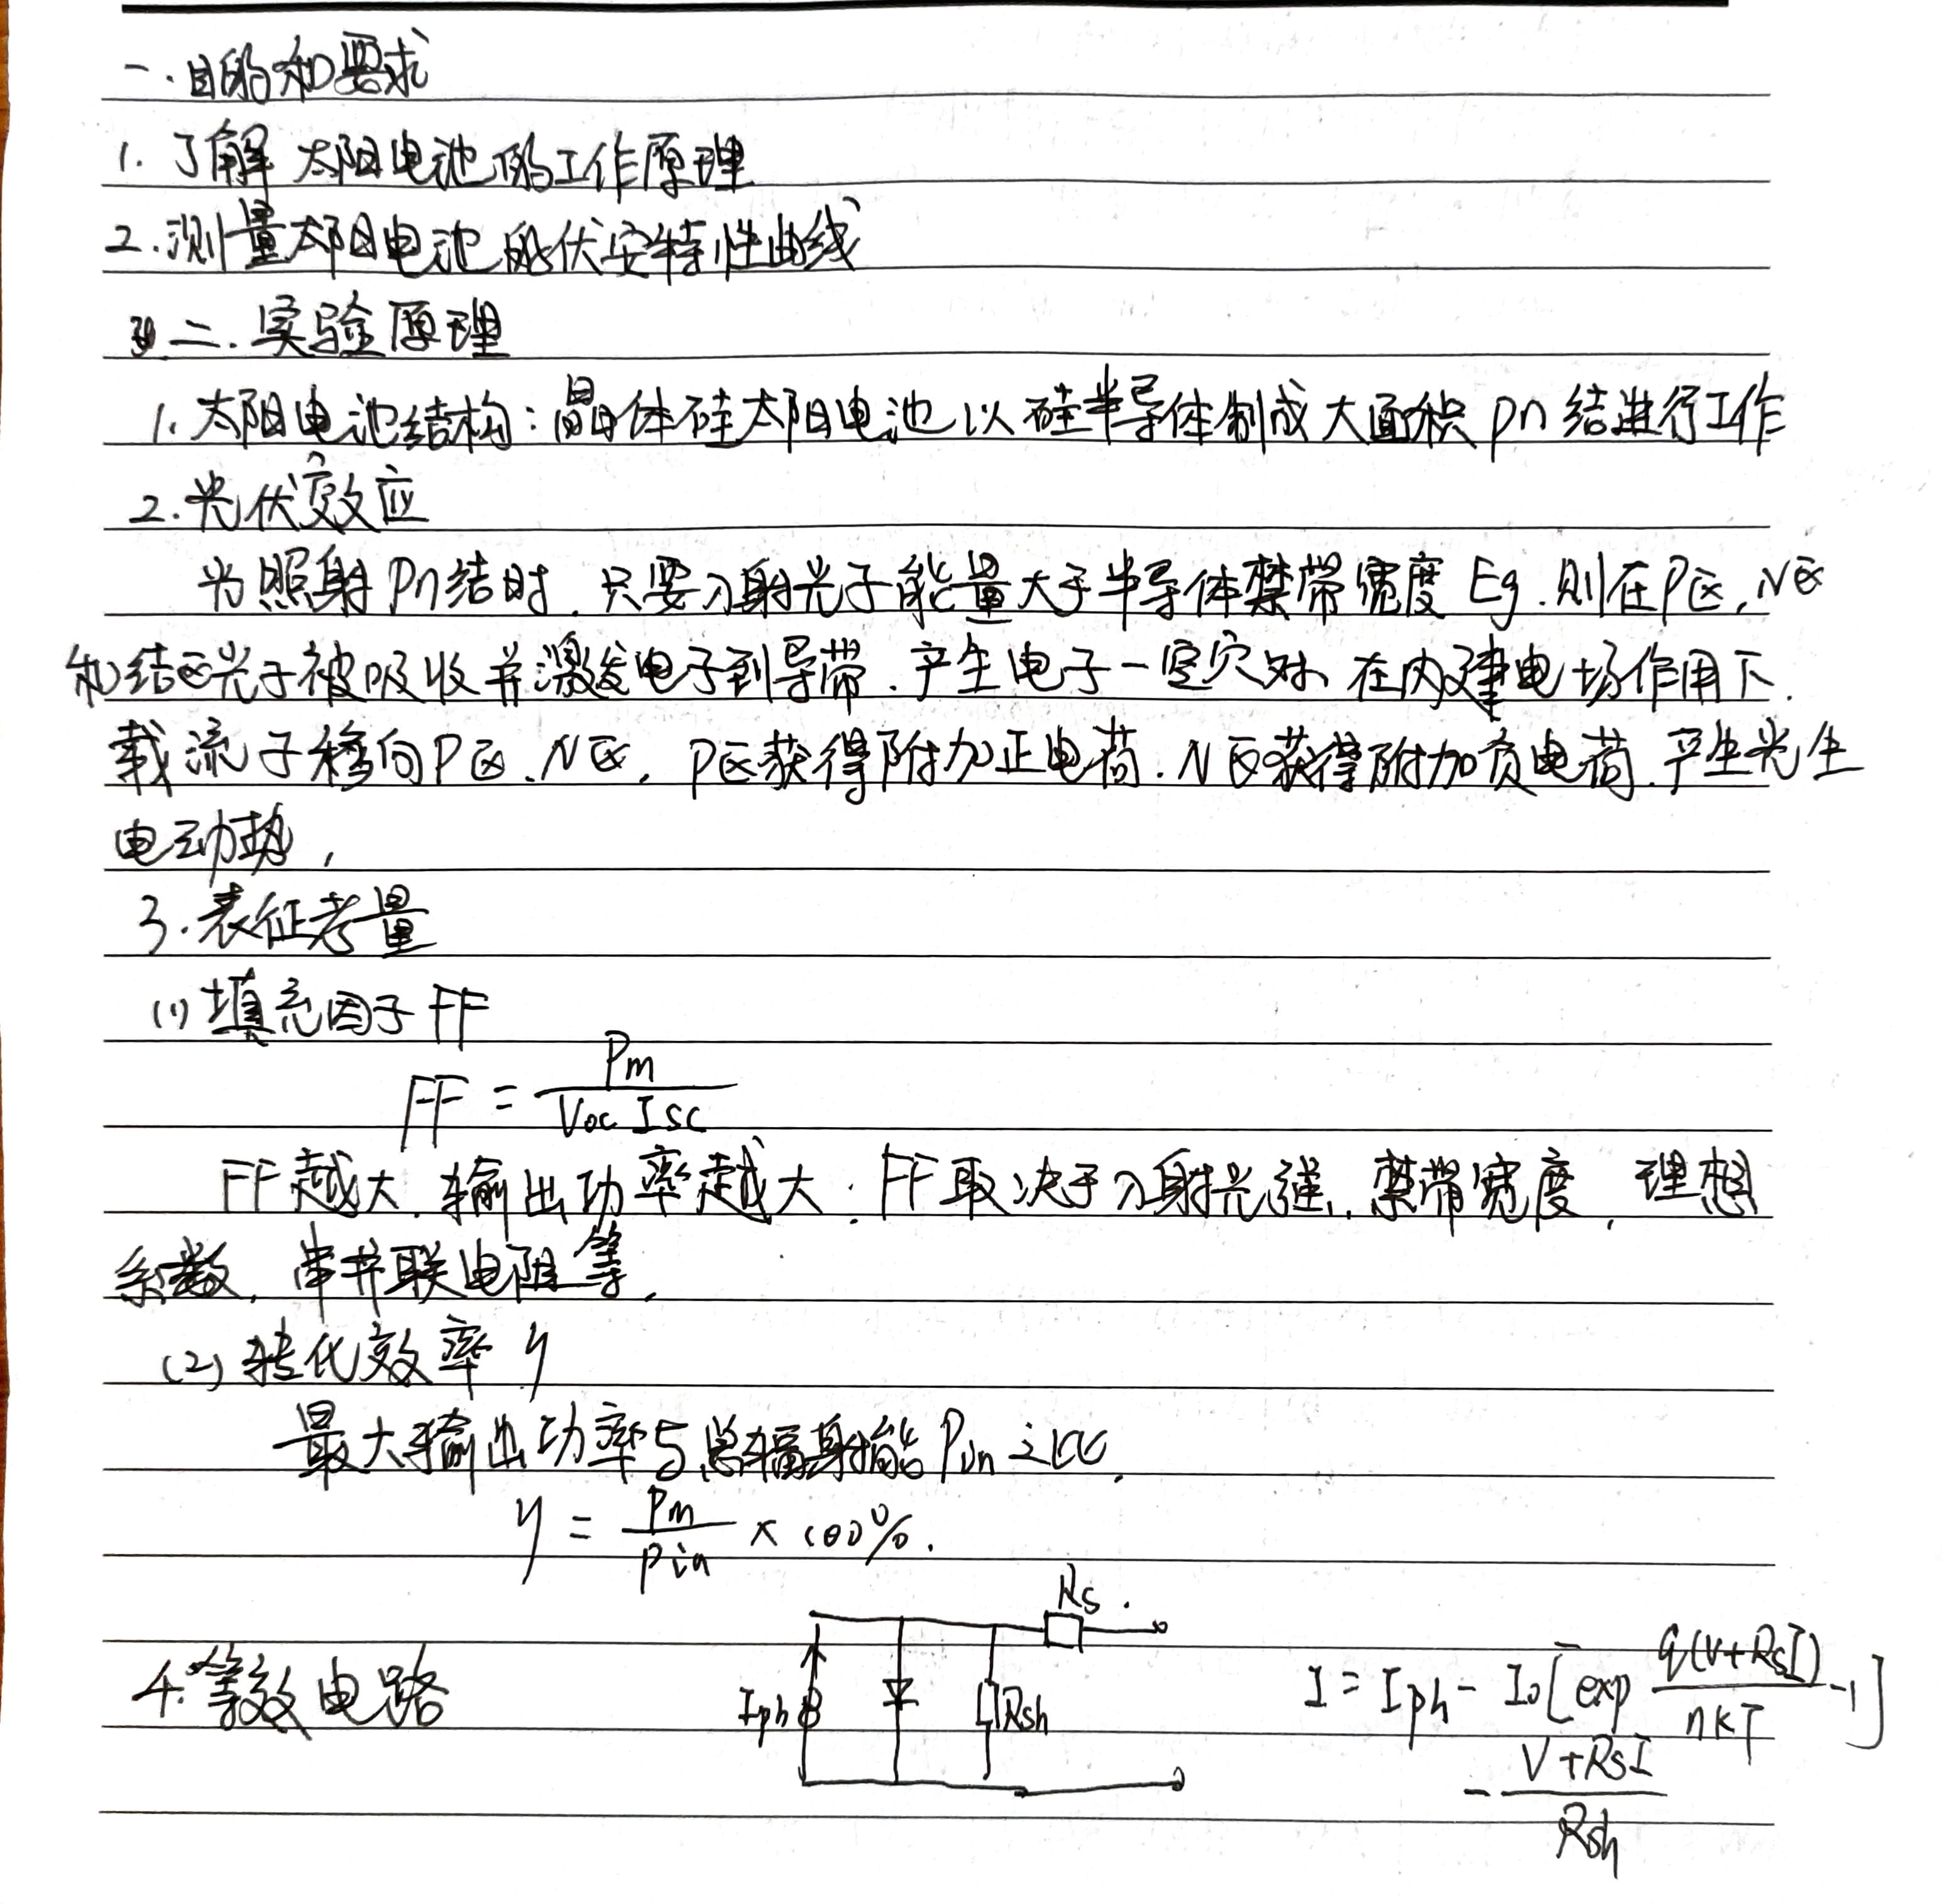 一.目的和要求
1.了解太阳电池的工作原理
2.测量太阳电池的伏安特性曲线
二.实验原理
1.太阳电池结构:晶体硅太阳电池以硅半导体制成大面积pn结进行工作
2.光伏效应
光照射pn结时.只要入射光子能量大于半导体禁带宽度Eg.则在P区,N区
和结区光子被吸收并激发电子到导带.产生电子-空穴对,在内建电场作用下.
载流子移向P区.N区,P区获得附加正电荷.N区获得附加负电荷.产生光生
电动势,
3.表征考量
(1)填充因子FF
FF = Pm / Voc Isc
FF越大.输出功率越大.FF取决于入射光强.禁带宽度,理想
系数,串并联电阻等.
(2)转化效率η
最大输出功率与总辐射能Pin之比.
η = Pm / Pin × 100%.
4.等效电路
Rs
Iph
Rsh
I = Iph - I0[exp q(V+RsI) / nkT -1]
- V+RsI / Rsh